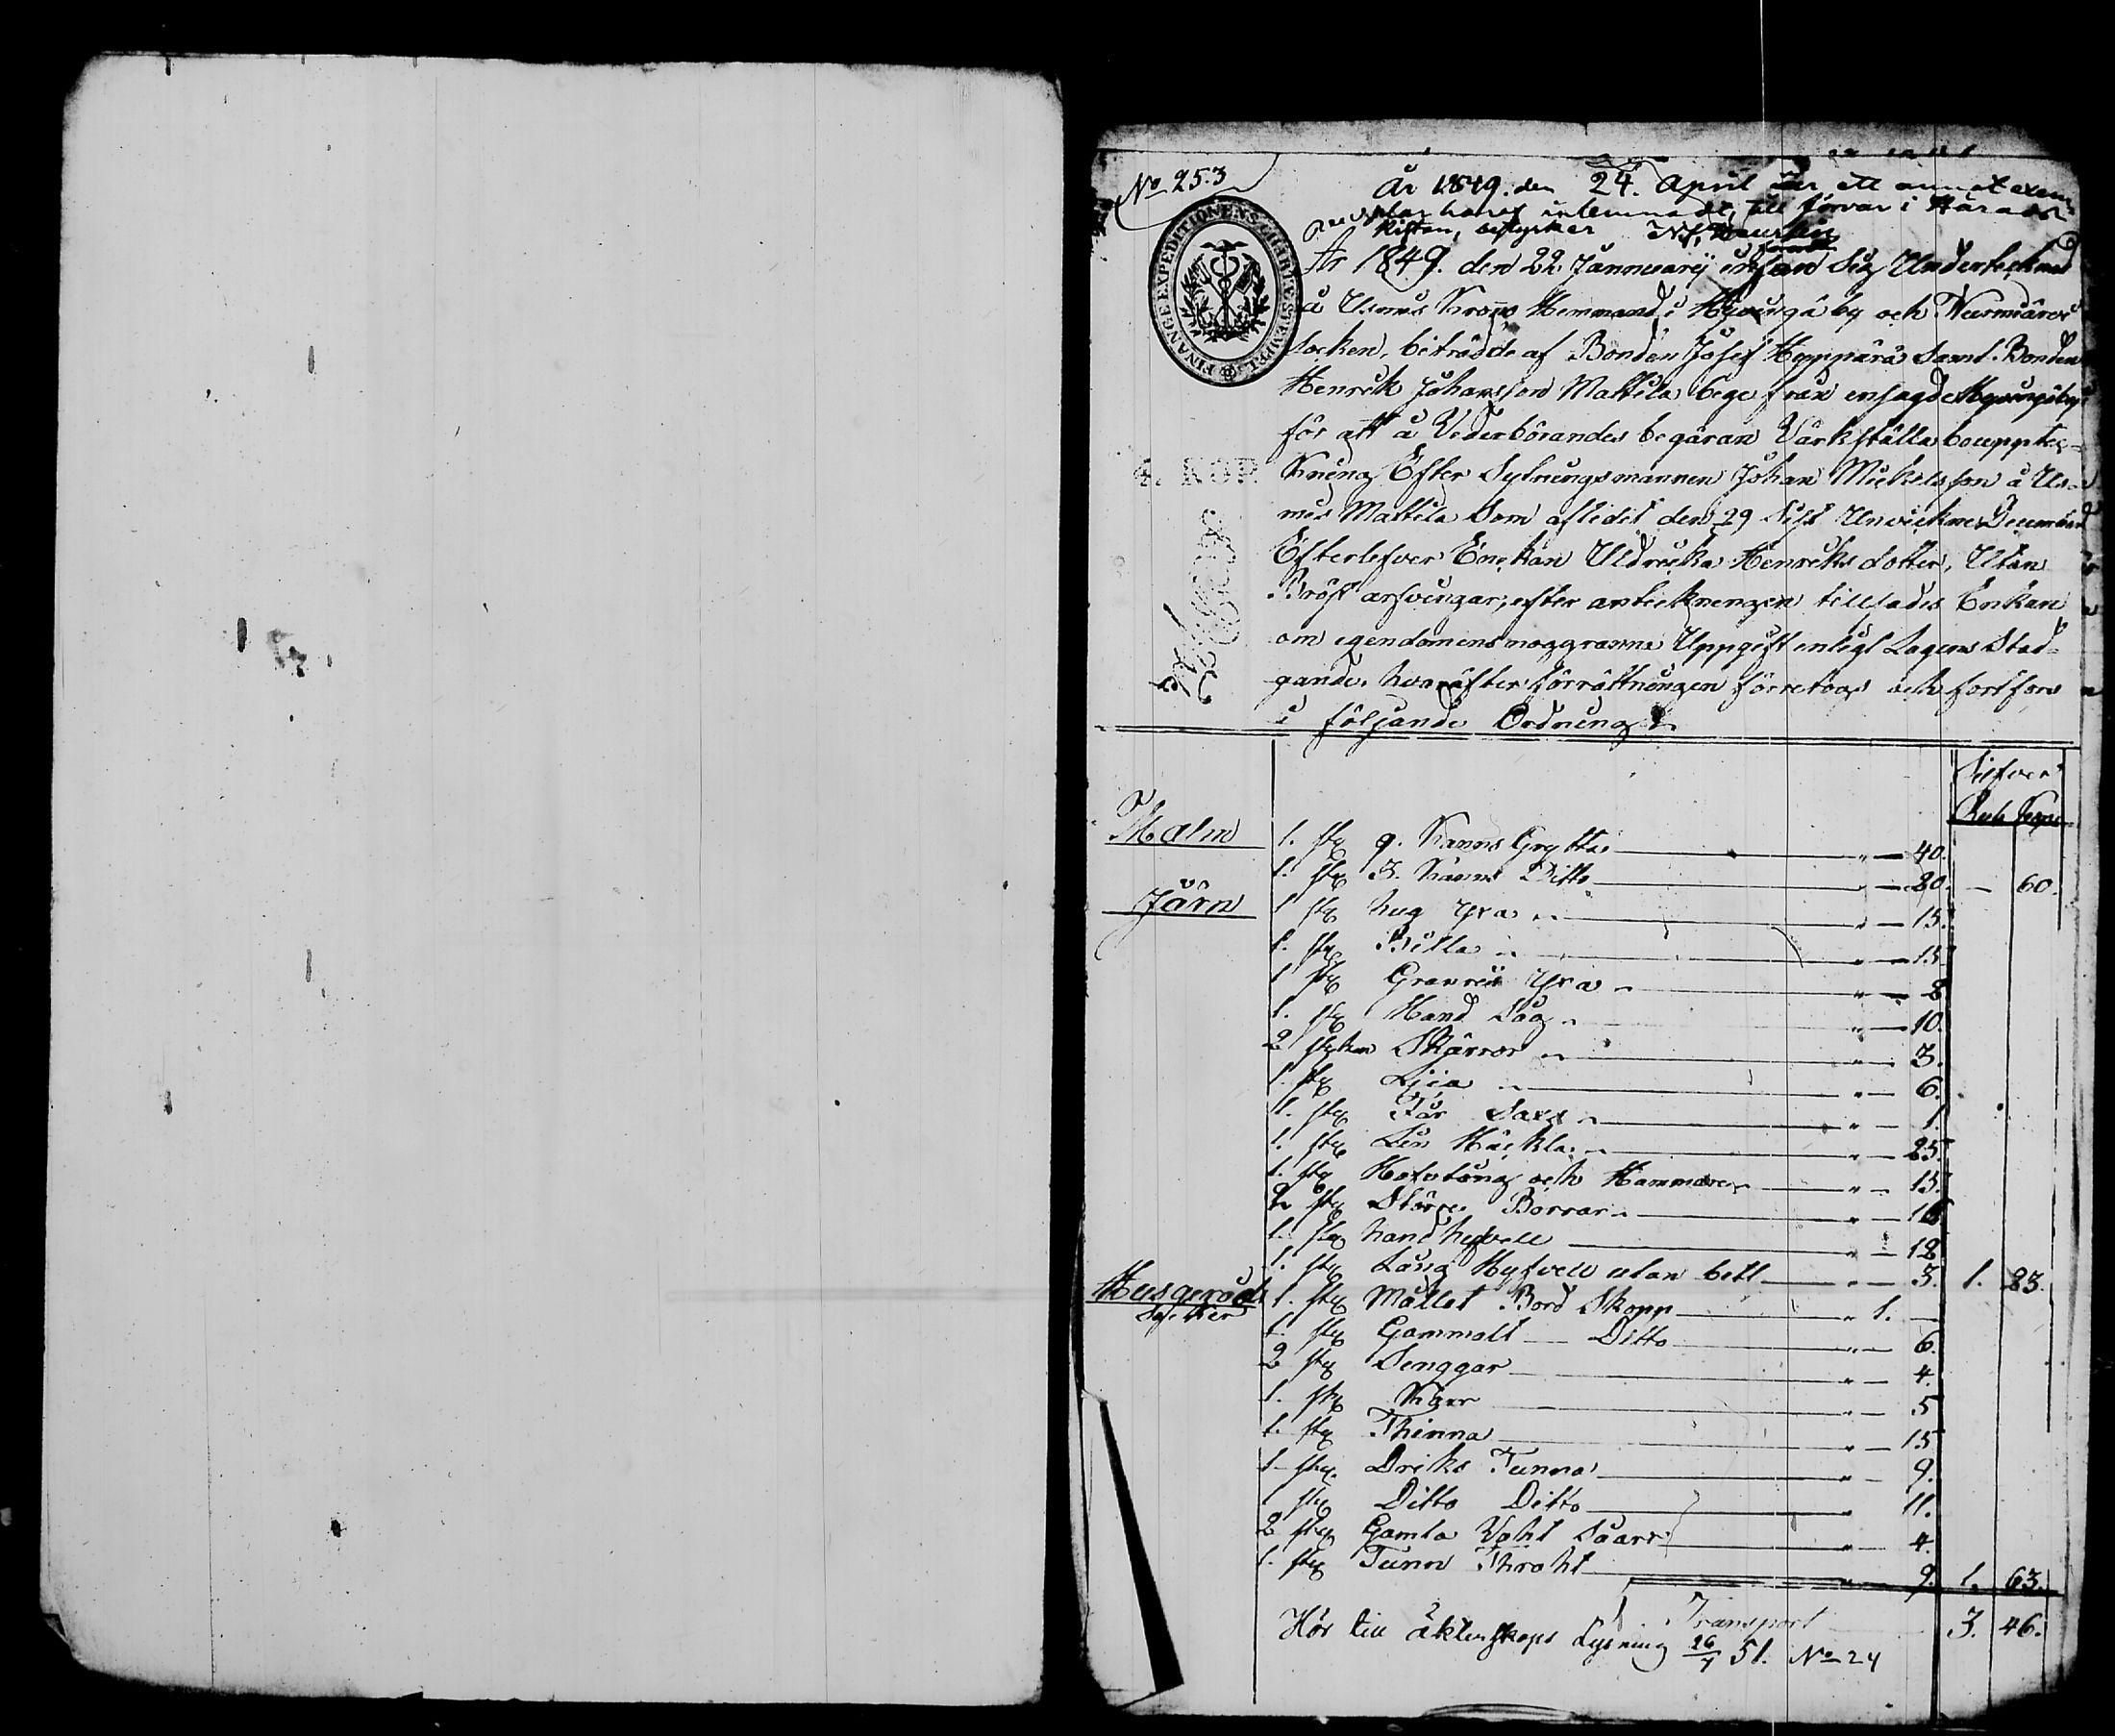 No 253
År 1849. den 24. April är ett annat exem-
plar häraf inlemnadt, till förvar i Härads
kistan, betyrker
FINANCE EXPEDITIONENS CHARTÆ STEMPEL
4. KOP.
År 1849. den 22 Jannuarij infan Sig Undertecknad
å Usmis Krono Hemmand i Hyvingä by och Nurmiärvi
Socken, biträdde af Bonden Josef Hyppärä Samt Bonden
Henrik Johansson Mattila bege från ensagde Hyvingäby
för att å Vederbörandes begäran Värkställa bouppteck-
kning Efter Sytningsmannen Johan Mickelsson å Us-
mis Mattila Som aflidit den 29 Sist
Efterlefver Enekan Uldricka Henriks dotter, Utan
Bröst arfvingar, efter anteckningen tillsades Enkan
om egendomens noggranna Uppgift enligt Lagens Stad-
gande. hvaräfter förrättningen företogs och fortfors
i följande Ordning
Silfver
Rub Kop
Malm 1. stÿ 9. Kanns Grytta " 40.
1. stÿ 3. Kanns Ditto " 20. — 60.
Järn 1 stÿ hug Yxa " 15.
1. stÿ Billa " 15
1 stÿ Yxa " 8
1. stÿ Hand Såg " 10.
2 styken Skäror " 3.
1. stÿ Ljia " 6.
1. stÿ Får Saxs " 1.
1. stÿ Lin Häckla " 25.
1. stÿ Hofvtång och Hammare " 15.
2 stÿ Större Borrar "
1. stÿ hand hyfvell " 18
1. stÿ Lång Hyfvell utan bett " 3. 1. 83.
Husgeråds
Saker
1. stÿ Mållet Bord Skopp " 1. —
1. stÿ Gammalt Ditto " 6.
2 stÿ Senggar " 4.
1. stÿ Karr " 5
1. stÿ Thinna " 15
1 stÿ Driks Tunna " 9.
1 stÿ Ditto Ditto " 11.
2 stÿ Gamla Saar " 4.
1. stÿ Tunn " 9. 1. 63.
Transport 3. 46.
Hör till äktenskaps Lysning 26/7 51. No 24